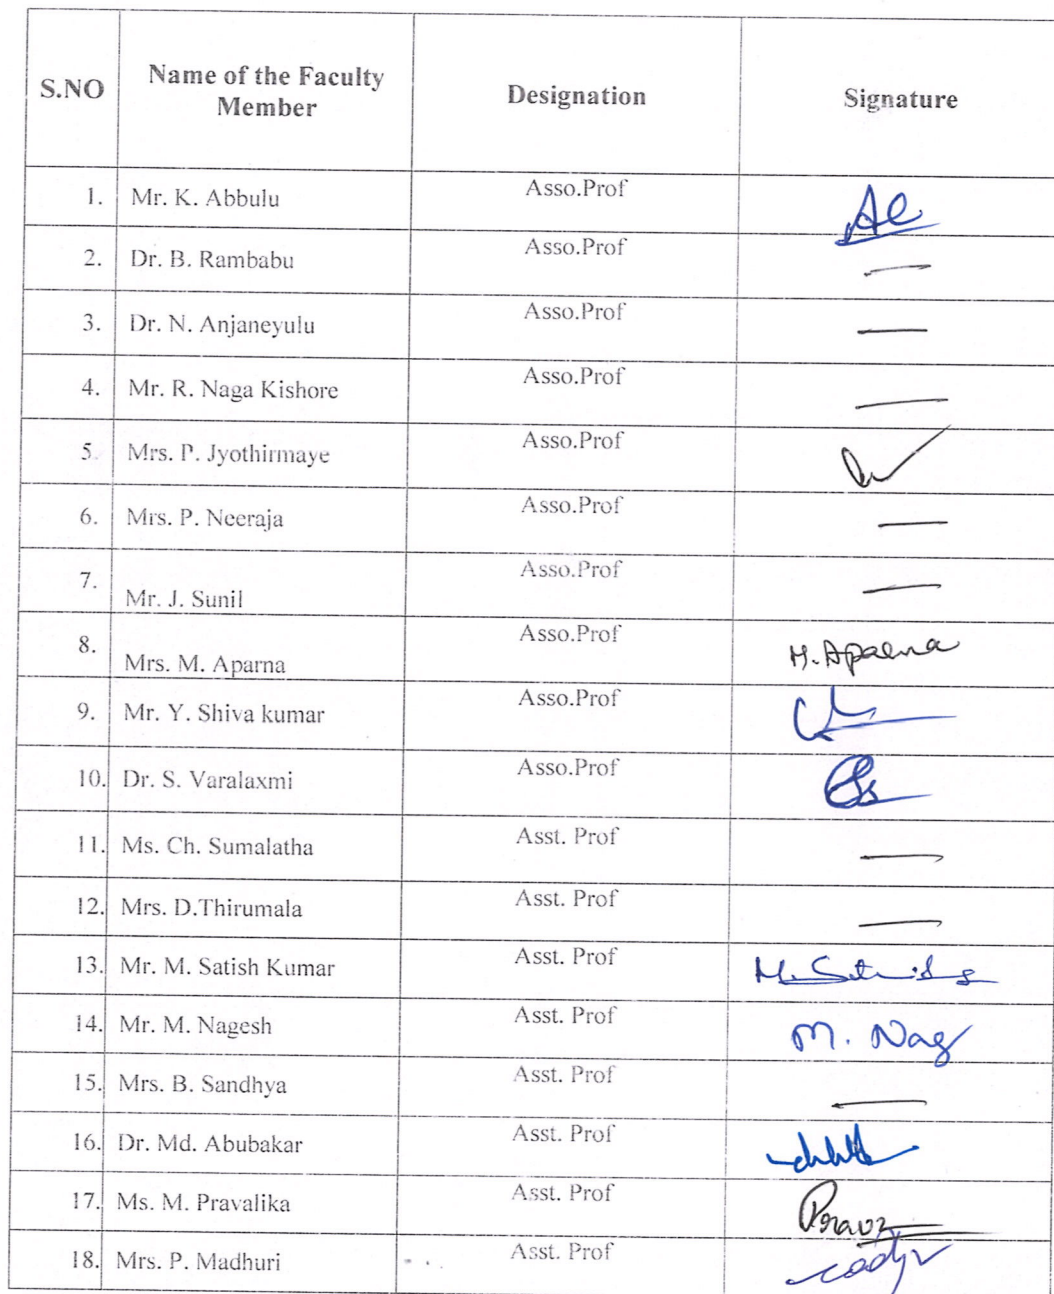 S.NO Name of the Faculty Member Designation Signature
1. Mr. K. Abbulu Asso.Prof
2. Dr. B. Rambabu Asso.Prof —
3. Dr. N. Anjaneyulu Asso.Prof —
4. Mr. R. Naga Kishore Asso.Prof —
5. Mrs. P. Jyothirmaye Asso.Prof
6. Mrs. P. Neeraja Asso.Prof —
7. Mr. J. Sunil Asso.Prof —
8. Mrs. M. Aparna Asso.Prof M. Aparna
9. Mr. Y. Shiva kumar Asso.Prof
10. Dr. S. Varalaxmi Asso.Prof
11. Ms. Ch. Sumalatha Asst. Prof —
12. Mrs. D.Thirumala Asst. Prof —
13. Mr. M. Satish Kumar Asst. Prof
14. Mr. M. Nagesh Asst. Prof M. Nag
15. Mrs. B. Sandhya Asst. Prof —
16. Dr. Md. Abubakar Asst. Prof
17. Ms. M. Pravalika Asst. Prof
18. Mrs. P. Madhuri Asst. Prof